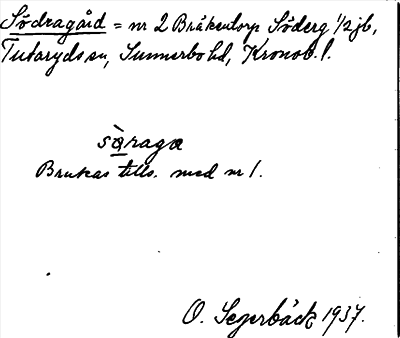 Södragård = nr 2 Bråkentorp Söderg 1/2 jb,
Tutaryds sn, Sunnerbo hd, Kronob. l.
sàragα
Brukas tills. med nr 1.
O. Segerbäck 1937.